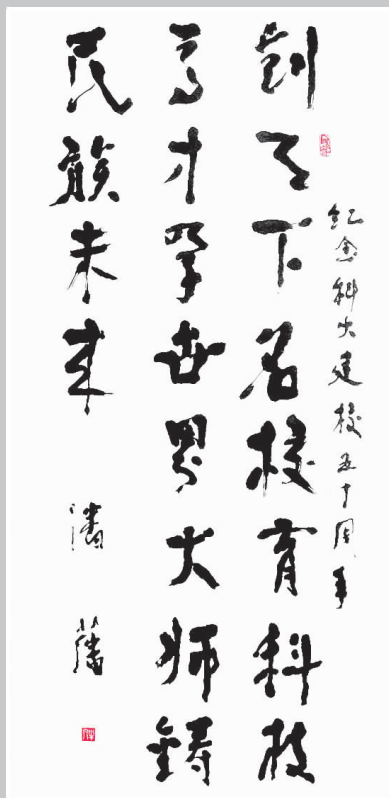 紀念科大建校五十周年
創天下名校育科技
高才 世界大师鑄
民族未来
潘